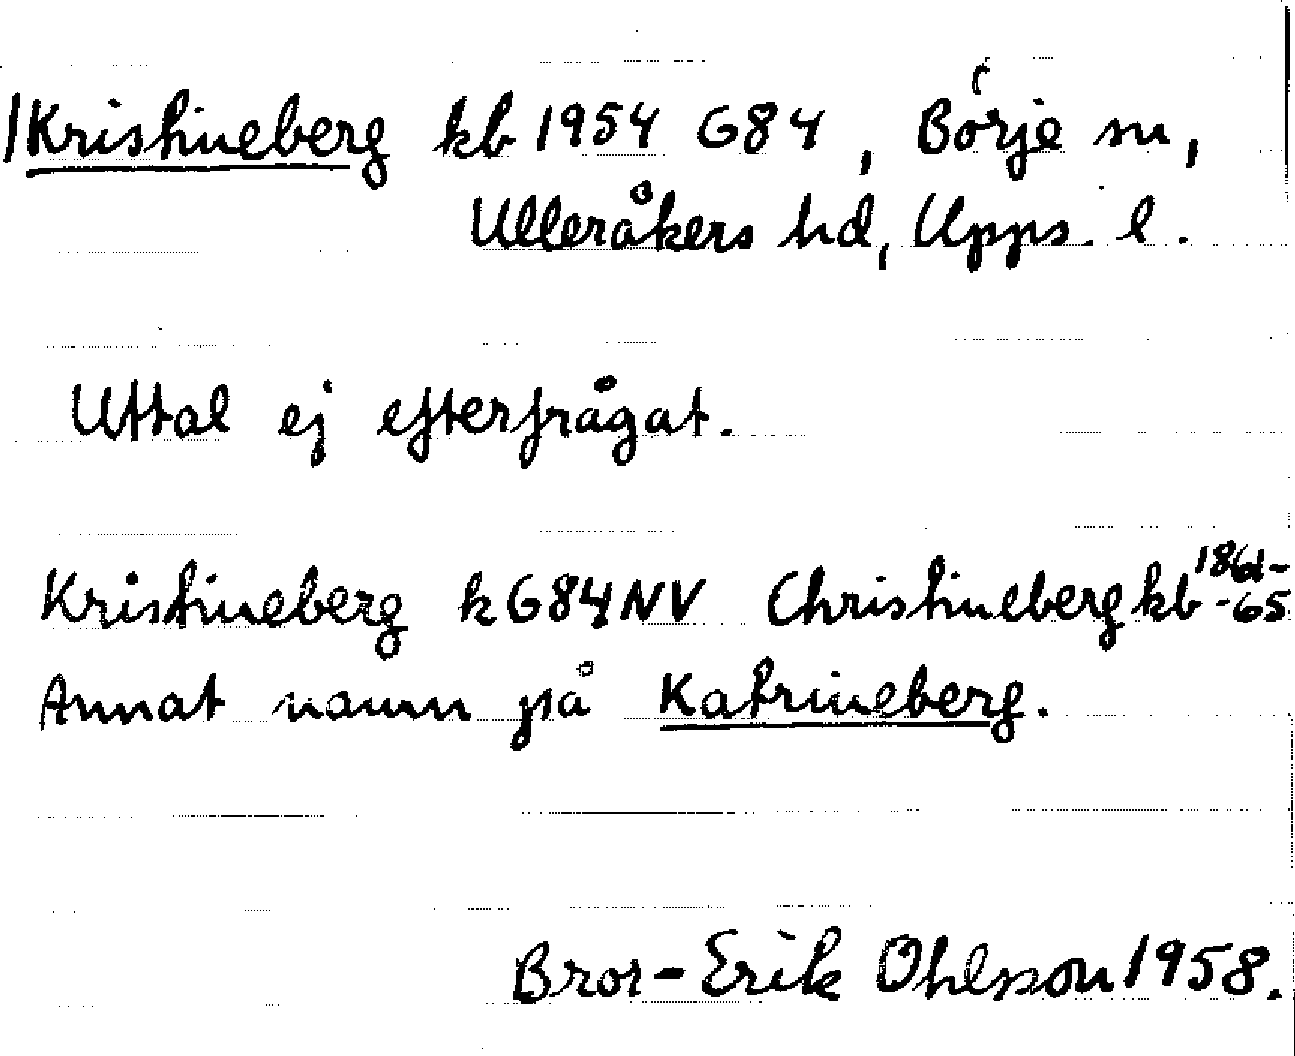 /Kristineberg kb 1954 G84, Börje sn,
Ulleråkers hd, Upps. l.
Uttal ej efterfrågat.
Kristineberg k G84NV Christineberg kb 1861-
-65
Annat namn på Katrineberg.
Bror-Erik Ohlsson 1958.